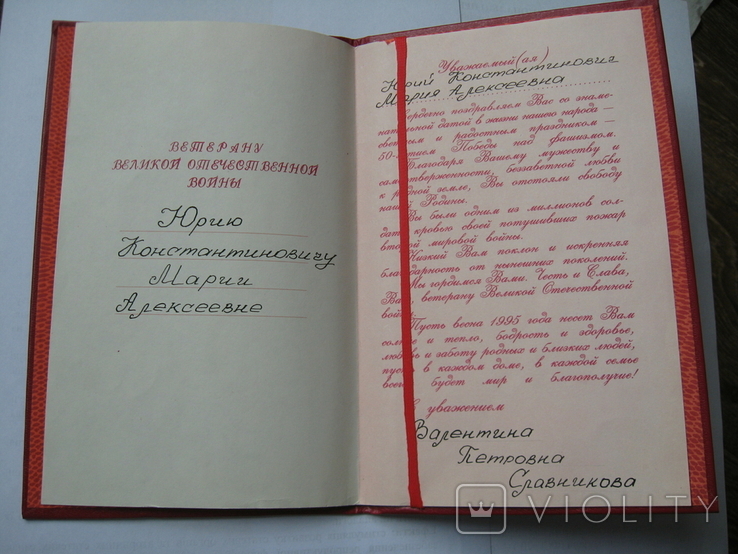 ВЕТЕРАНУ
ВЕЛИКОЙ ОТЕЧЕСТВЕННОЙ
ВОЙНЫ
Юрию
Константиновичу
Марии
Алексеевне
Уважаемый(ая)
Юрий Константинович
Мария Алексеевна
Сердечно поздравляем Вас со знаме-
нательной датой в жизни нашего народа —
светлым и радостным праздником —
50-летием Победы над фашизмом.
Благодаря Вашему мужеству и
самоотверженности, беззаветной любви
к родной земле, Вы отстояли свободу
нашей Родины.
Вы были одним из миллионов сол-
дат, кровью своей потушивших пожар
второй мировой войны.
Низкий Вам поклон и искренняя
благодарность от нынешних поколений.
Мы гордимся Вами. Честь и Слава,
Вам, ветерану Великой Отечественной
войны!
Пусть весна 1995 года несет Вам
солнце и тепло, бодрость и здоровье,
любовь и заботу родных и близких людей,
пусть в каждом доме, в каждой семье
всегда будет мир и благополучие!
С уважением
Валентина
Петровна
Сравникова
VIOLITY